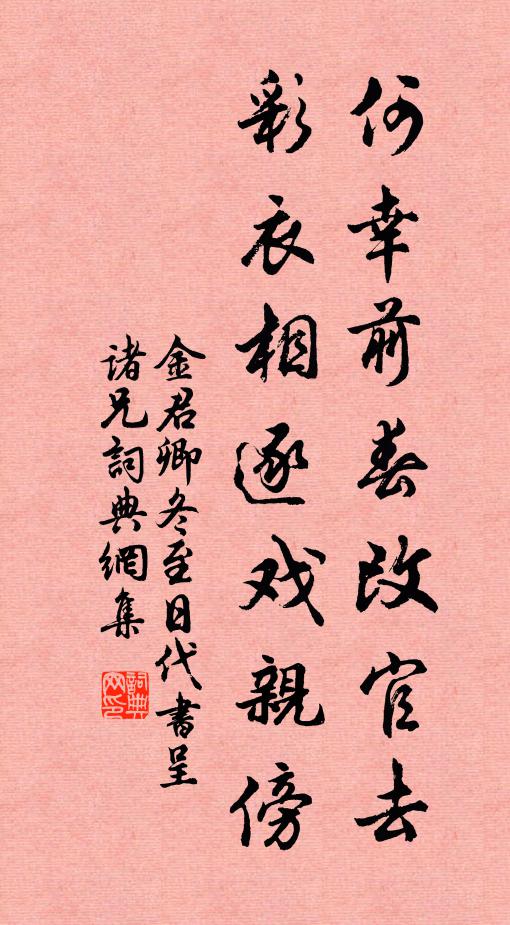 何幸前春改官去
彩衣相逐戏親傍
金君卿冬至日代書呈
诸兄詞典網集
詞典
网印